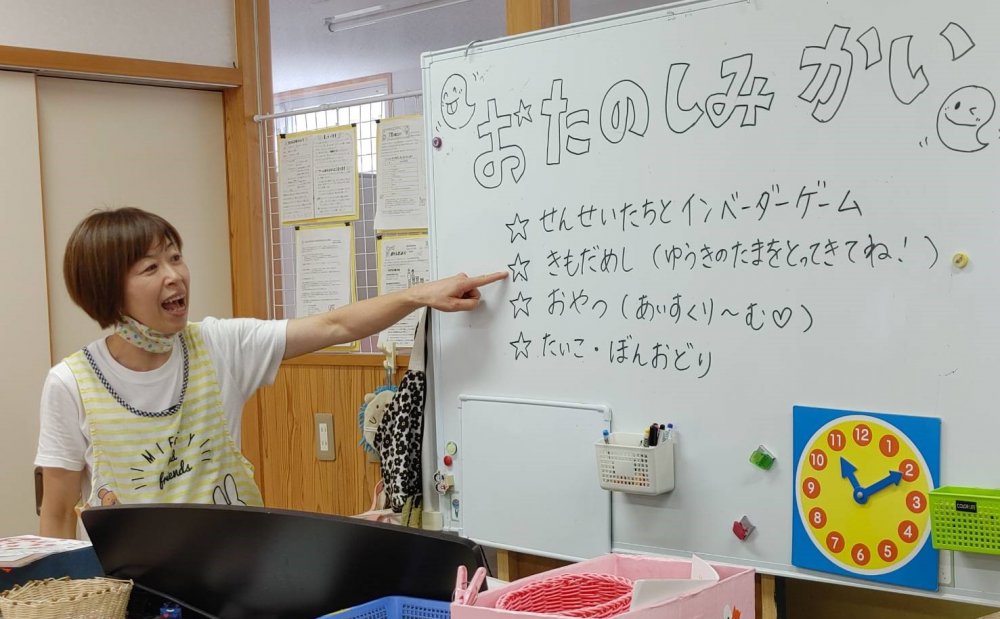 おたのしみかい
☆ せんせいたちとインベーダーゲーム
☆ きもだめし (ゆうきのたまをとってきてね!)
☆ おやつ (あいすくり〜む♡)
☆ たいこ・ぼんおどり
MIFFY
and
friends
11 12 1
10 2
9 3
8 4
7 6 5
COLOR LIFE